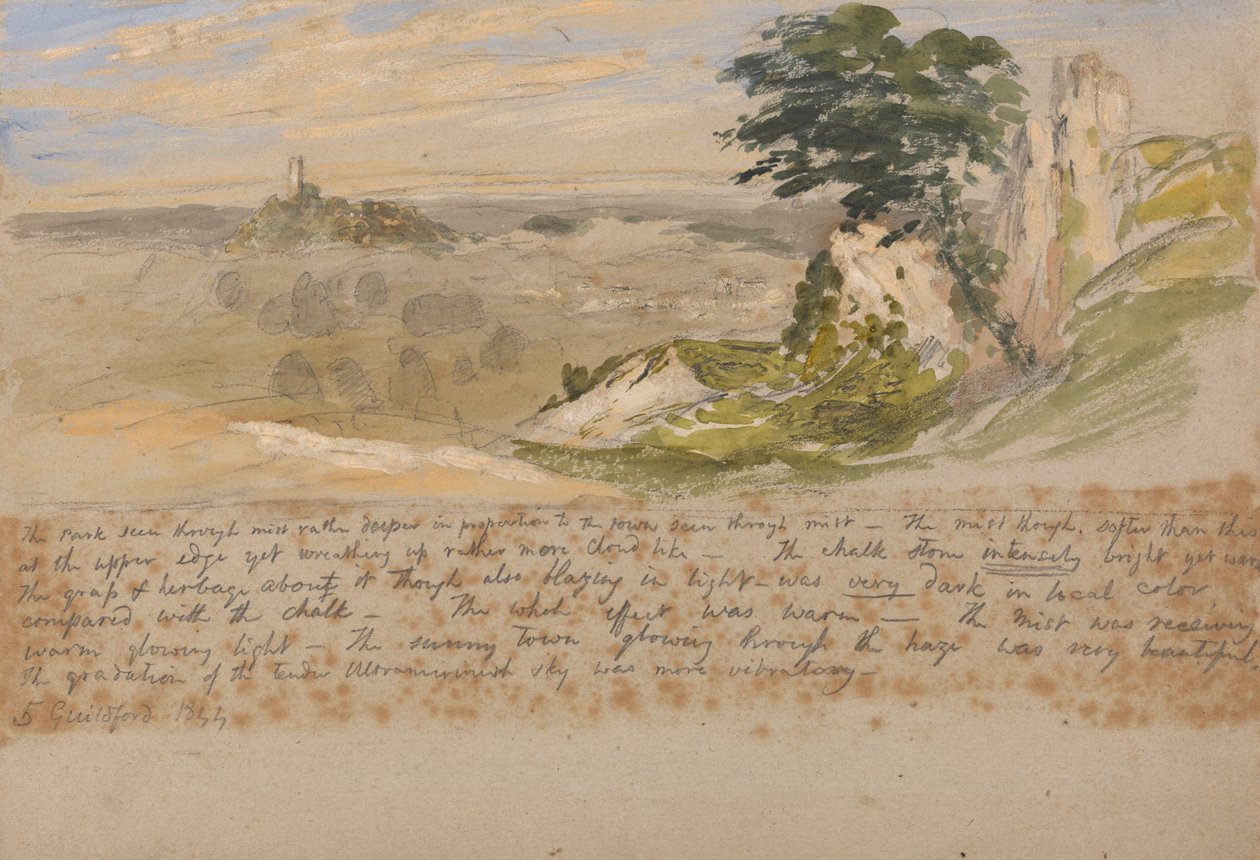 The Park seen through mist rather deeper in proportion to the town seen through mist — The mist though. softer than this
at the upper edge yet wreathing up rather more Cloud like — The chalk stone intensely bright yet warm
The grass & herbage about it though also blazing in light — was very dark in local color,
compared with the chalk — The whole effect was warm — The Mist was receiving
warm glowing light — The sunny town glowing through the haze was very beautiful
The gradation of the tender Ultramarinish sky was more vibratory —
5 Guildford 1844